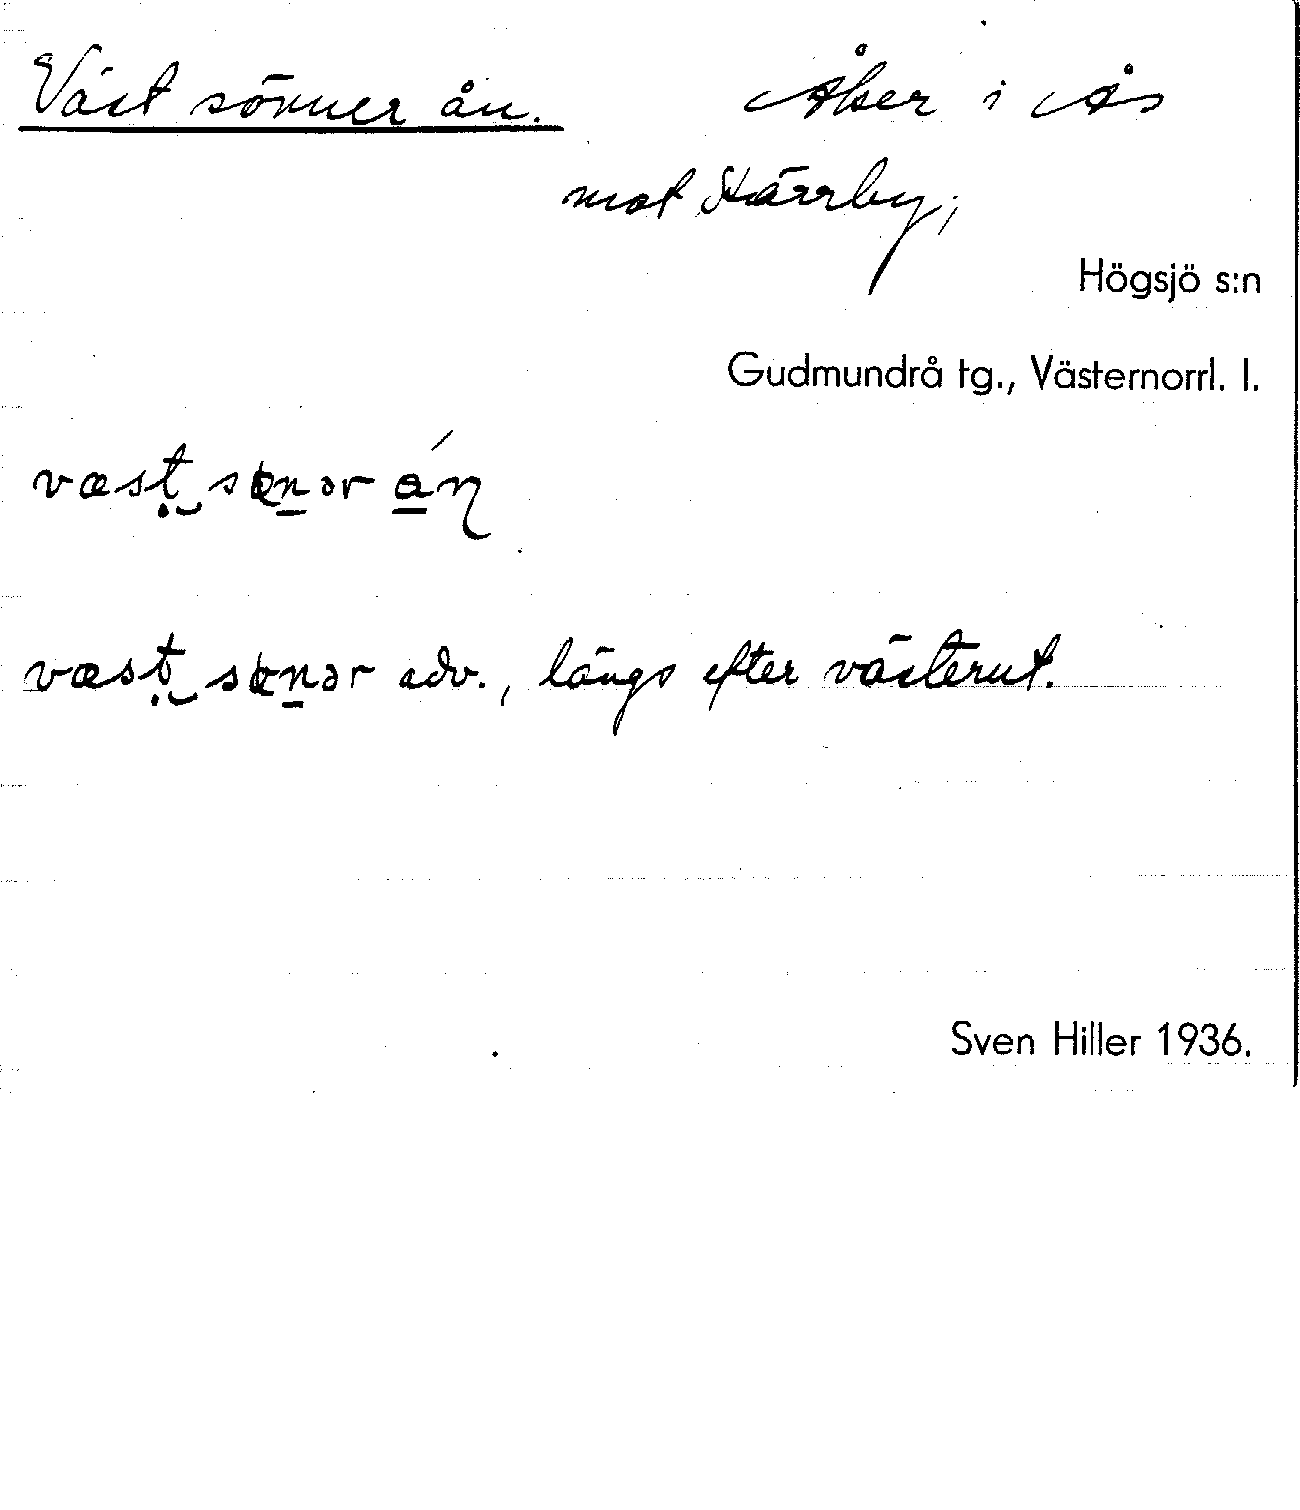 Väst sönner ån. Åker i Ås
mot Härrby,
Högsjö s:n
Gudmundrå tg., Västernorrl. l.
væst
væst adv., längs efter västerut.
Sven Hiller 1936.